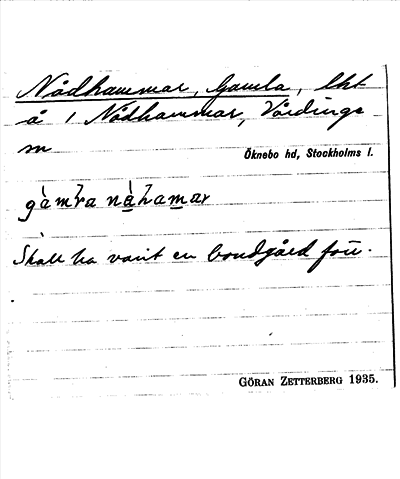 Nådhammar, Gamla, lht
å 1 Nådhammar, Vårdinge
sn
Öknebo hd, Stockholms l.
gàmra nàhamar
Skall ha varit en bondgård förr.
GÖRAN ZETTERBERG 1935.